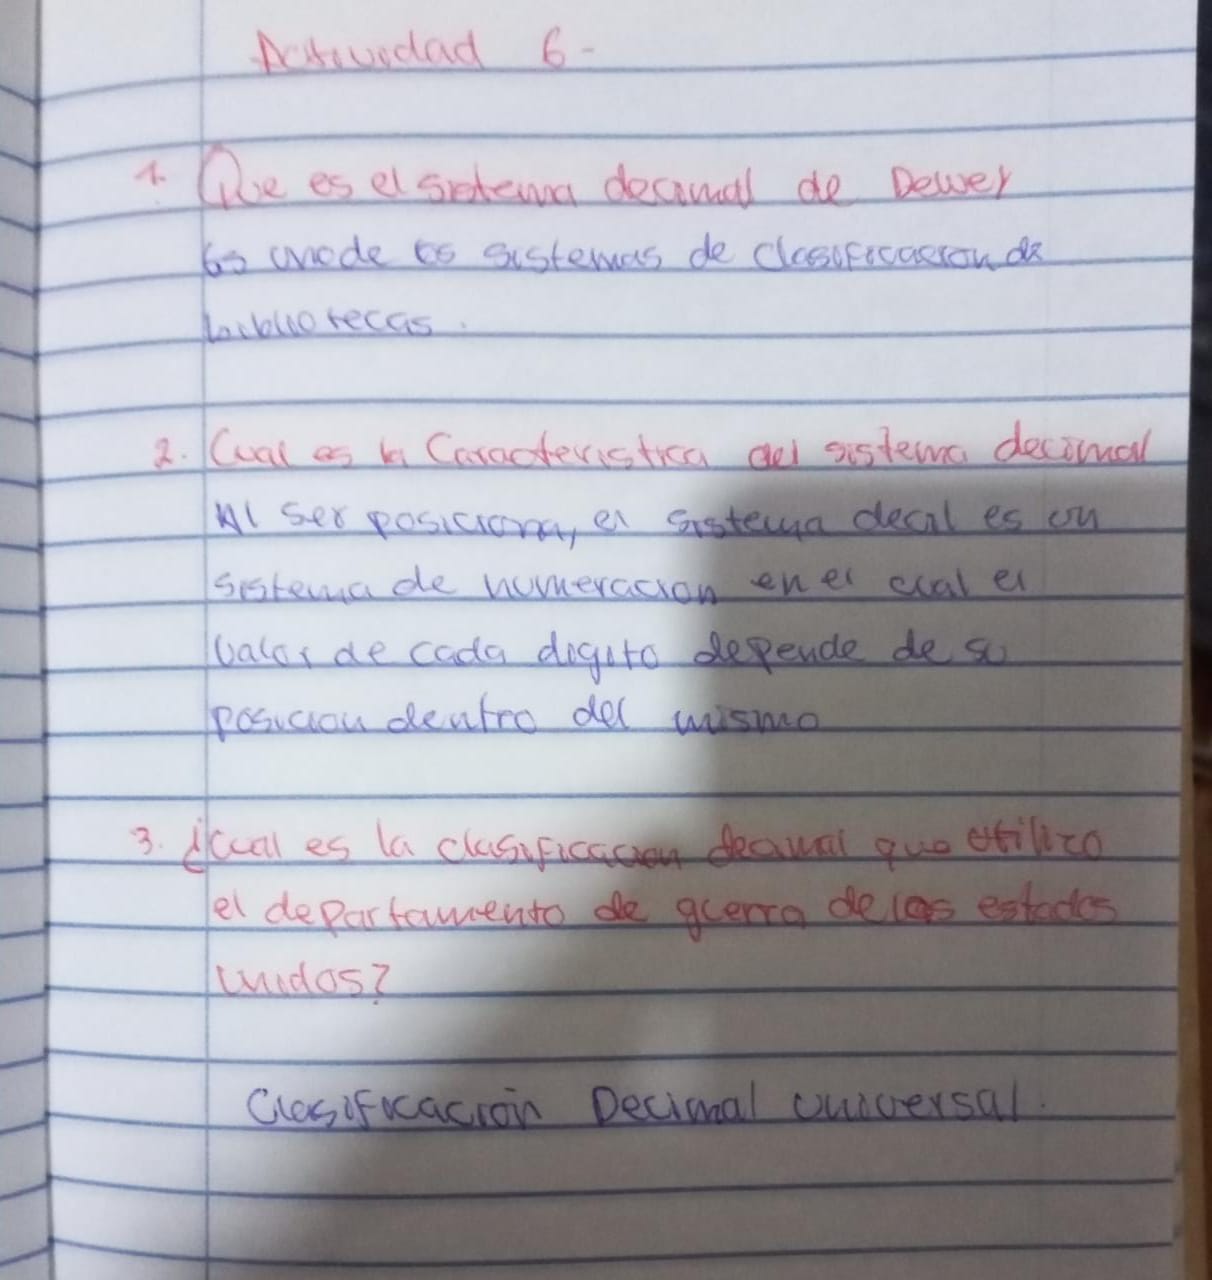 Actividad 6-
1. Que es el sistema decimal de Dewey
Es uno de los sistemas de clasificacion de
bibliotecas.
2. Cual es la Caracteristica del sistema decimal
Al ser posiciona, el sistema decal es un
sistema de numeracion en el cual el
valor de cada digito depende de su
posicion dentro del mismo
3. ¿Cual es la clasificacion decimal que utilizo
el departamento de gerra de los estados
unidos?
Clasificación Decimal universal.